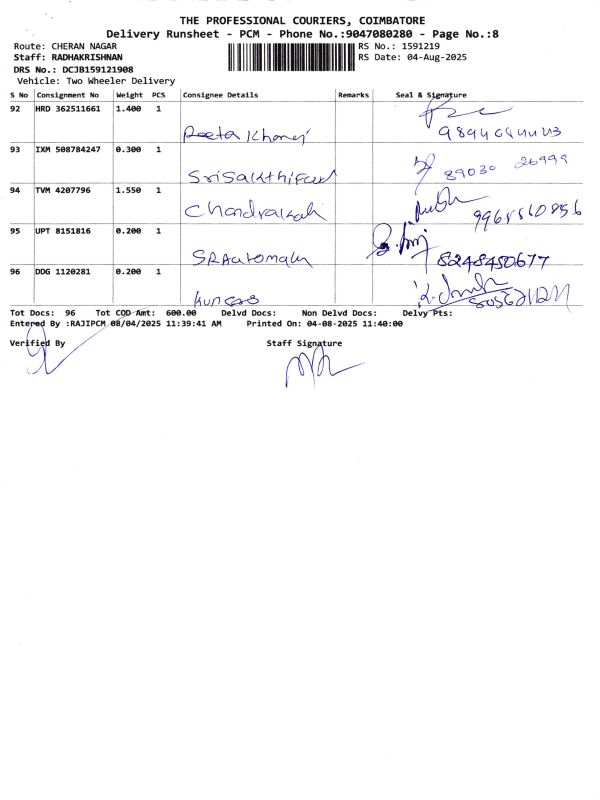 THE PROFESSIONAL COURIERS, COIMBATORE
Delivery Runsheet - PCM - Phone No.:9047080280 - Page No.:8
Route: CHERAN NAGAR RS No.: 1591219
Staff: RADHAKRISHNAN RS Date: 04-Aug-2025
DRS No.: DCJB159121908
Vehicle: Two Wheeler Delivery
S No Consignment No Weight PCS Consignee Details Remarks Seal & Signature
92 HRD 362511661 1.400 1
93 IXM 508784247 0.300 1
89030 26999
SriSakthiFud
94 TVM 4207796 1.550 1
Chandrakali
95 UPT 8151816 0.200 1
8248450677
96 DDG 1120281 0.200 1
Tot Docs: 96 Tot COD Amt: 600.00 Delvd Docs: Non Delvd Docs: Delvy Pts:
Entered By :RAJIPCM 08/04/2025 11:39:41 AM Printed On: 04-08-2025 11:40:00
Verified By Staff Signature